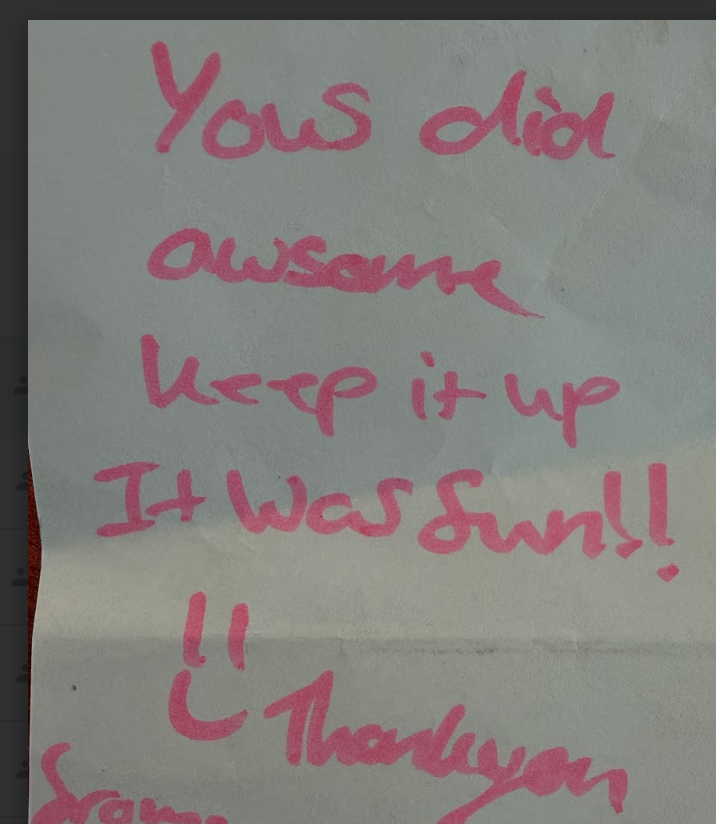 Yous did
awsome
keep it up
It was fun!!
Thankyou